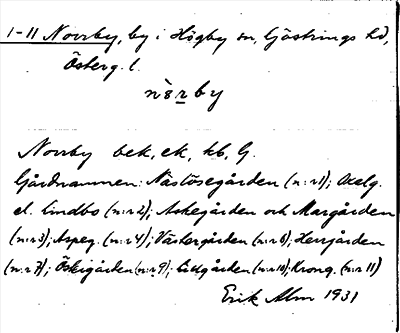 1-11 Norrby, by i Högby sn, Göstrings hd,
Österg. l.
n᾽o̊r̲by
Norrby bek, ek, kb, G.
Gårdnamnen: Nästösegården (n:r1); Axelg.
el. Lindbo (n:r2); Askegården och Margården
(n:r3); Aspeg. (n:r4); Västergården (n:r6); Herrgården
(n:r7); Öskigården (n:r9); Lillgården (n:r10); Krong. (n:r11)
Erik Alm 1931